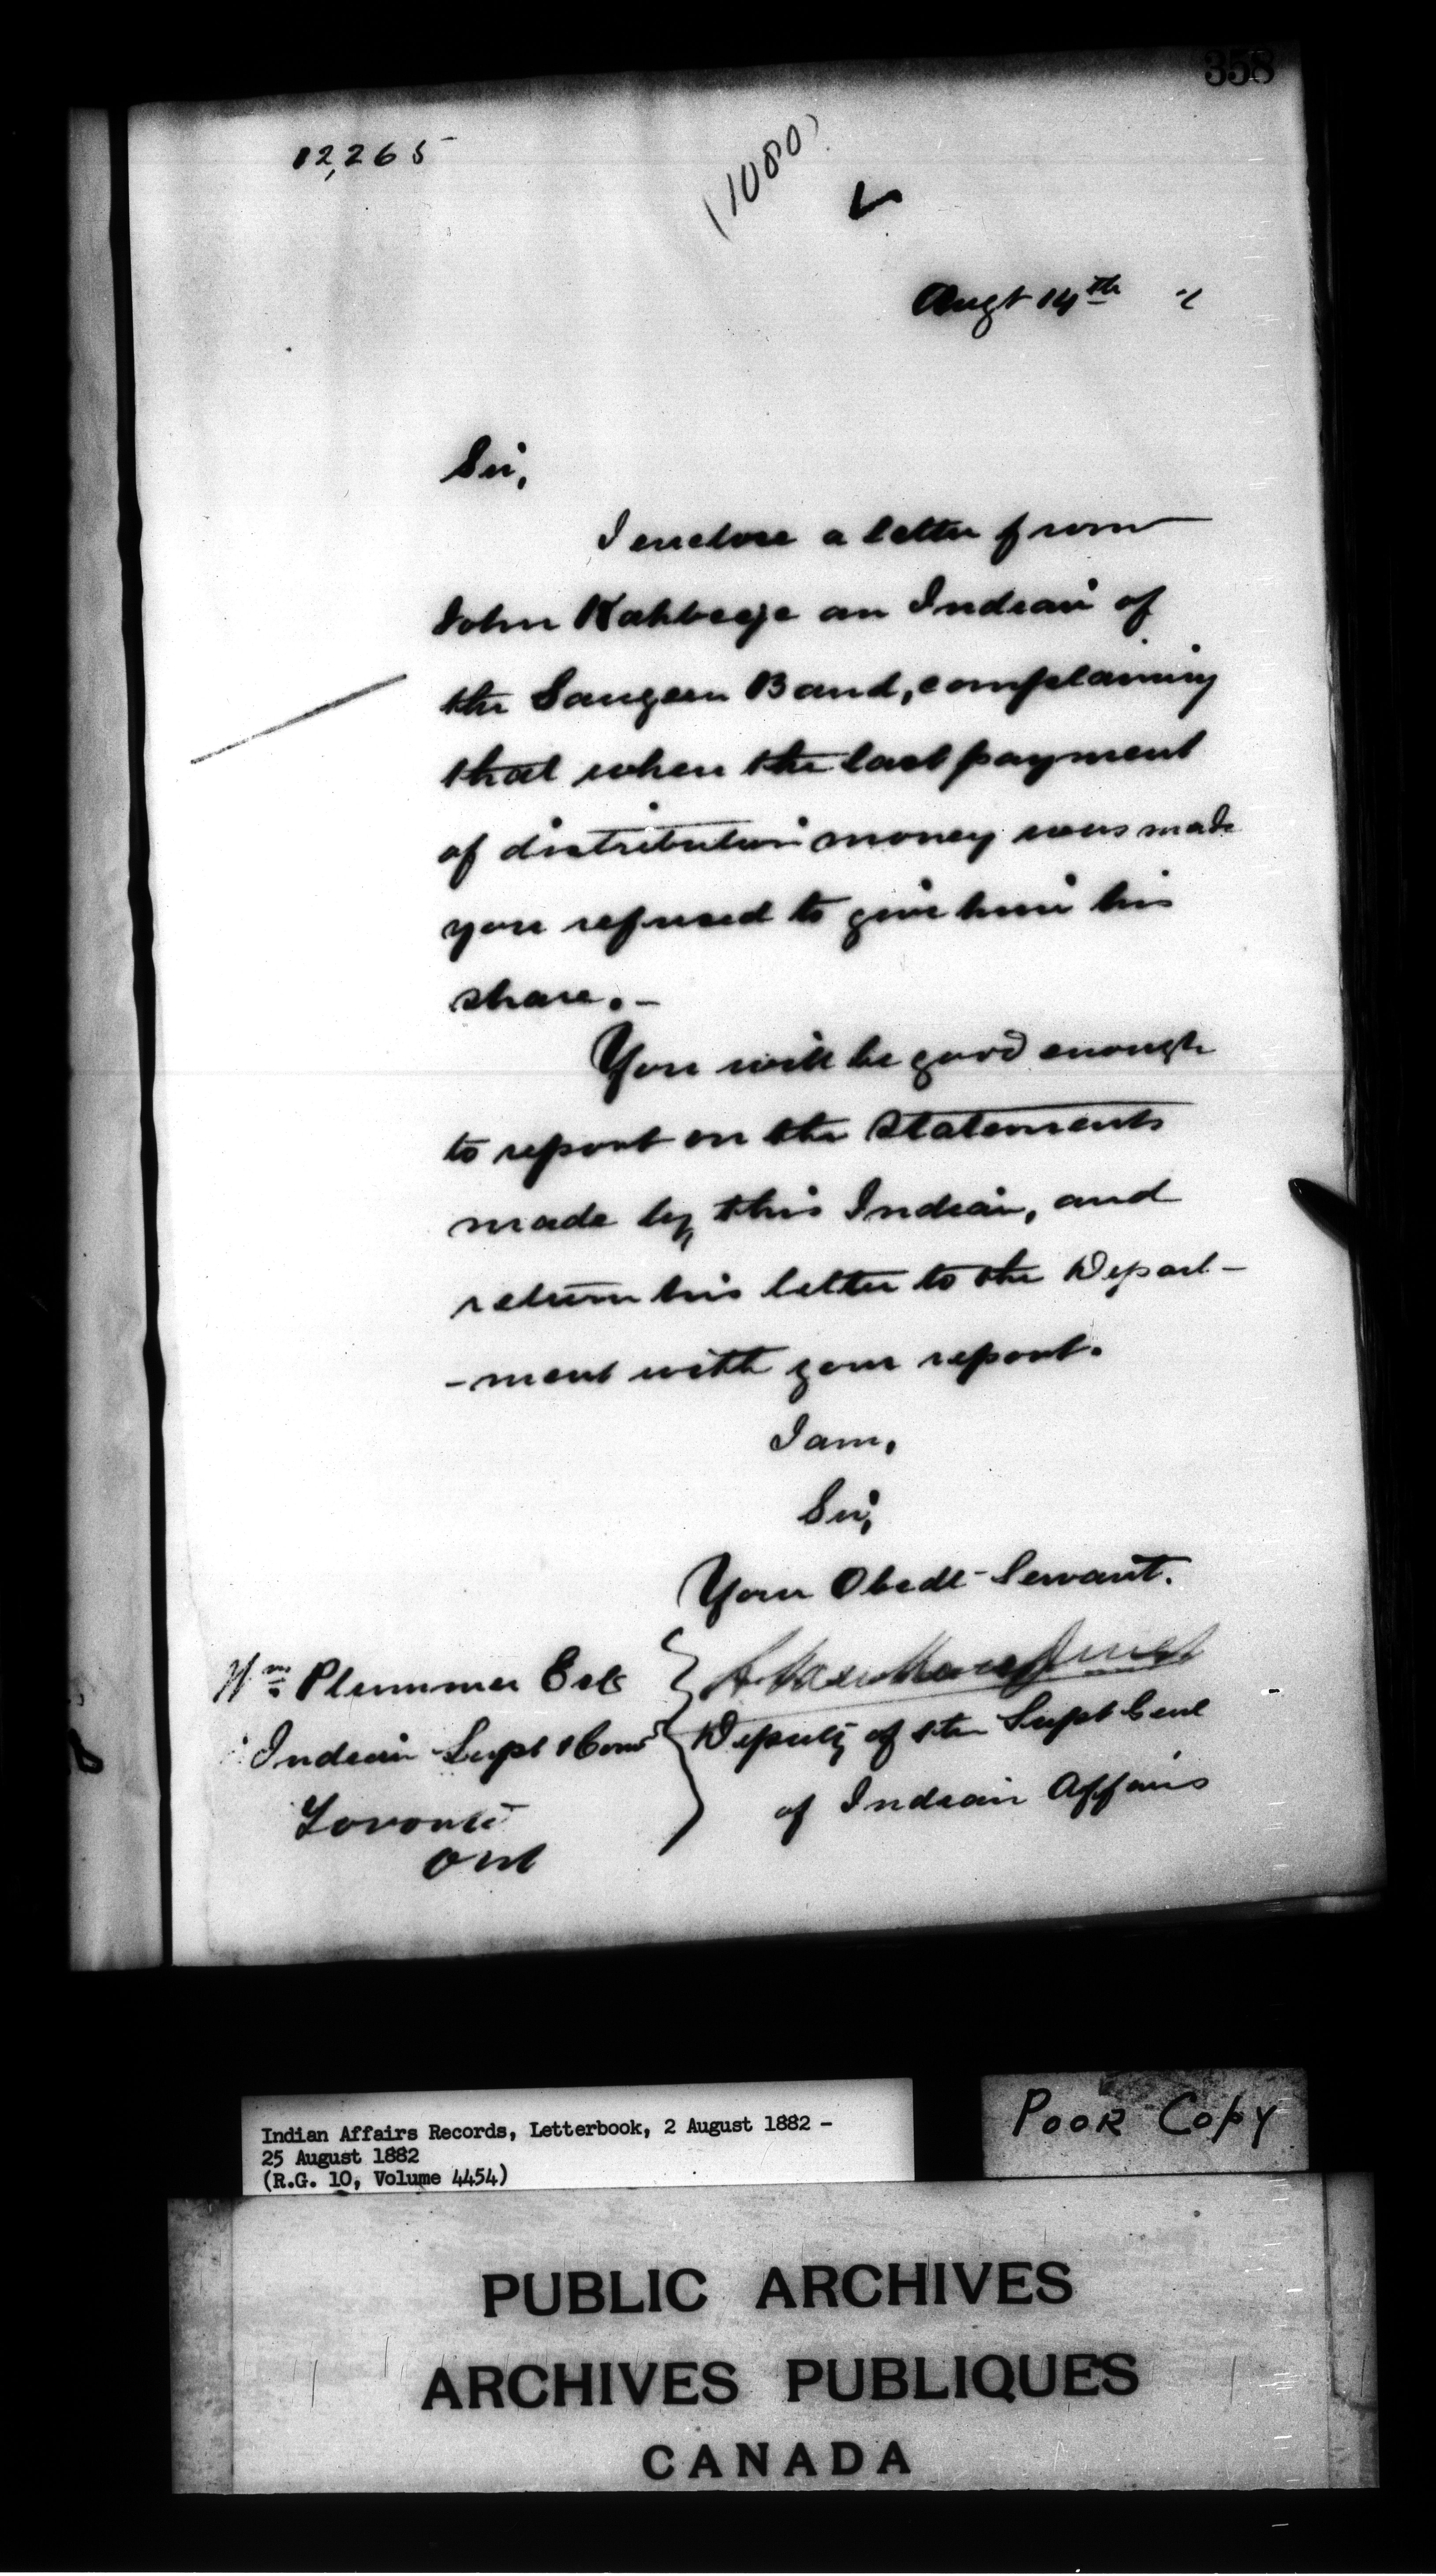 358
12,265
(1080)
Augt 14th
Sir,
I enclose a letter from
John Kahbege an Indian of
the Saugeen Band, complaining
that when the last payment
of distribution money was made
you refused to give him his
share. -
You will be good enough
to report on the statements
made by this Indian, and
return his letter to the Depart-
-ment with your report.
I am,
Sir,
Your Obedt Servant.
Wm Plummer Esq
Deputy of the Supt Genl
Indian Supt & Comr
of Indian Affairs
Toronto
Ont
Indian Affairs Records, Letterbook, 2 August 1882 -
25 August 1882
(R.G. 10, Volume 4454)
POOR COPY
PUBLIC ARCHIVES
ARCHIVES PUBLIQUES
CANADA